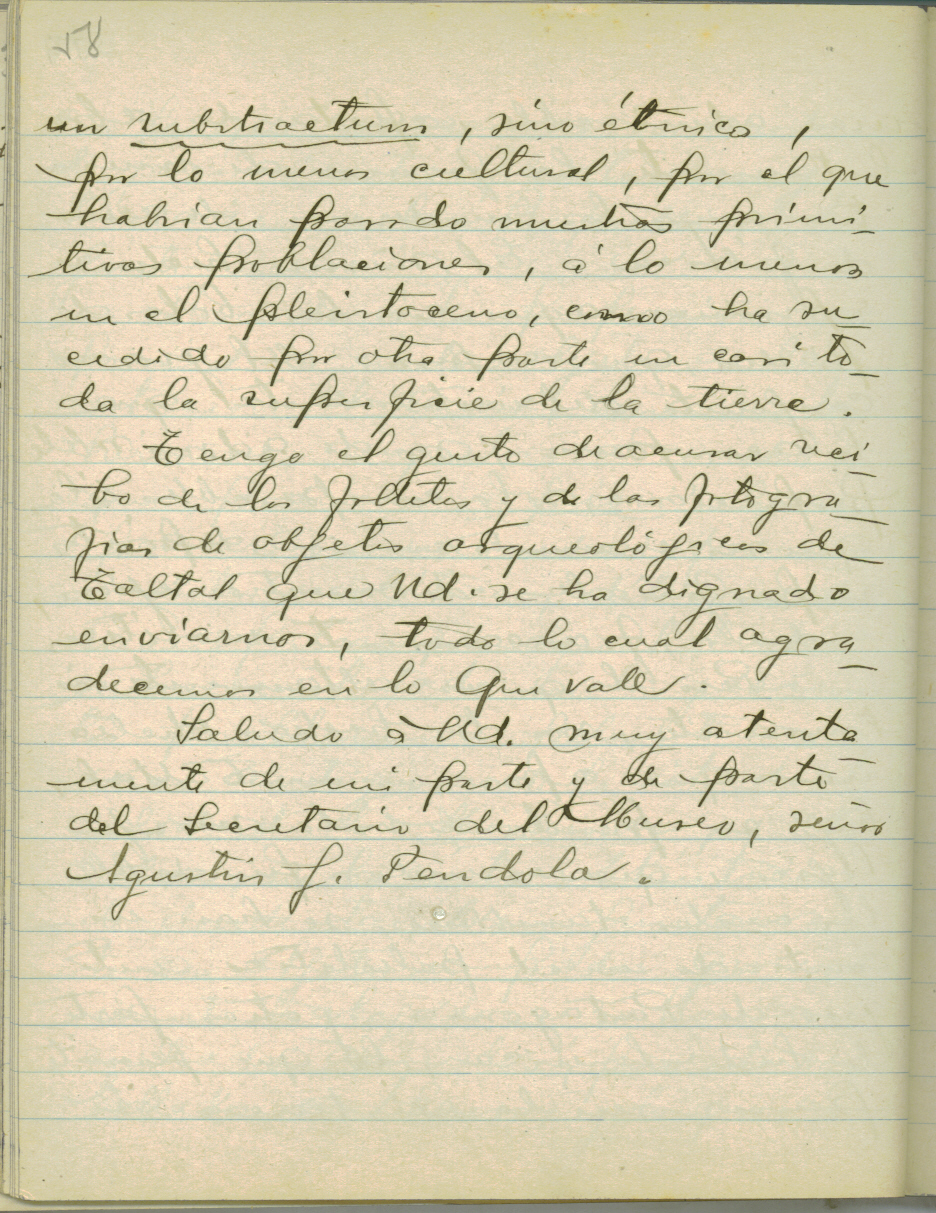 58
un substractum, sino étnico,
por lo menos cultural, por el que
habrian pasado muchas primi-
tivas poblaciones, á lo menos
en el pleistoceno, como ha su-
cedido por otra parte en casi to-
da la superficie de la tierra.
Tengo el gusto de acusar reci-
bo de los folletos y de las fotogra-
fias de objetos arqueológicos de
Taltal que Ud. se ha dignado
enviarnos, todo lo cual agra-
decemos en lo que vale.
Saludo à Ud. muy atenta-
mente de mi parte y de parte
del Secretario del Museo, señor
Agustin J. Pendola.